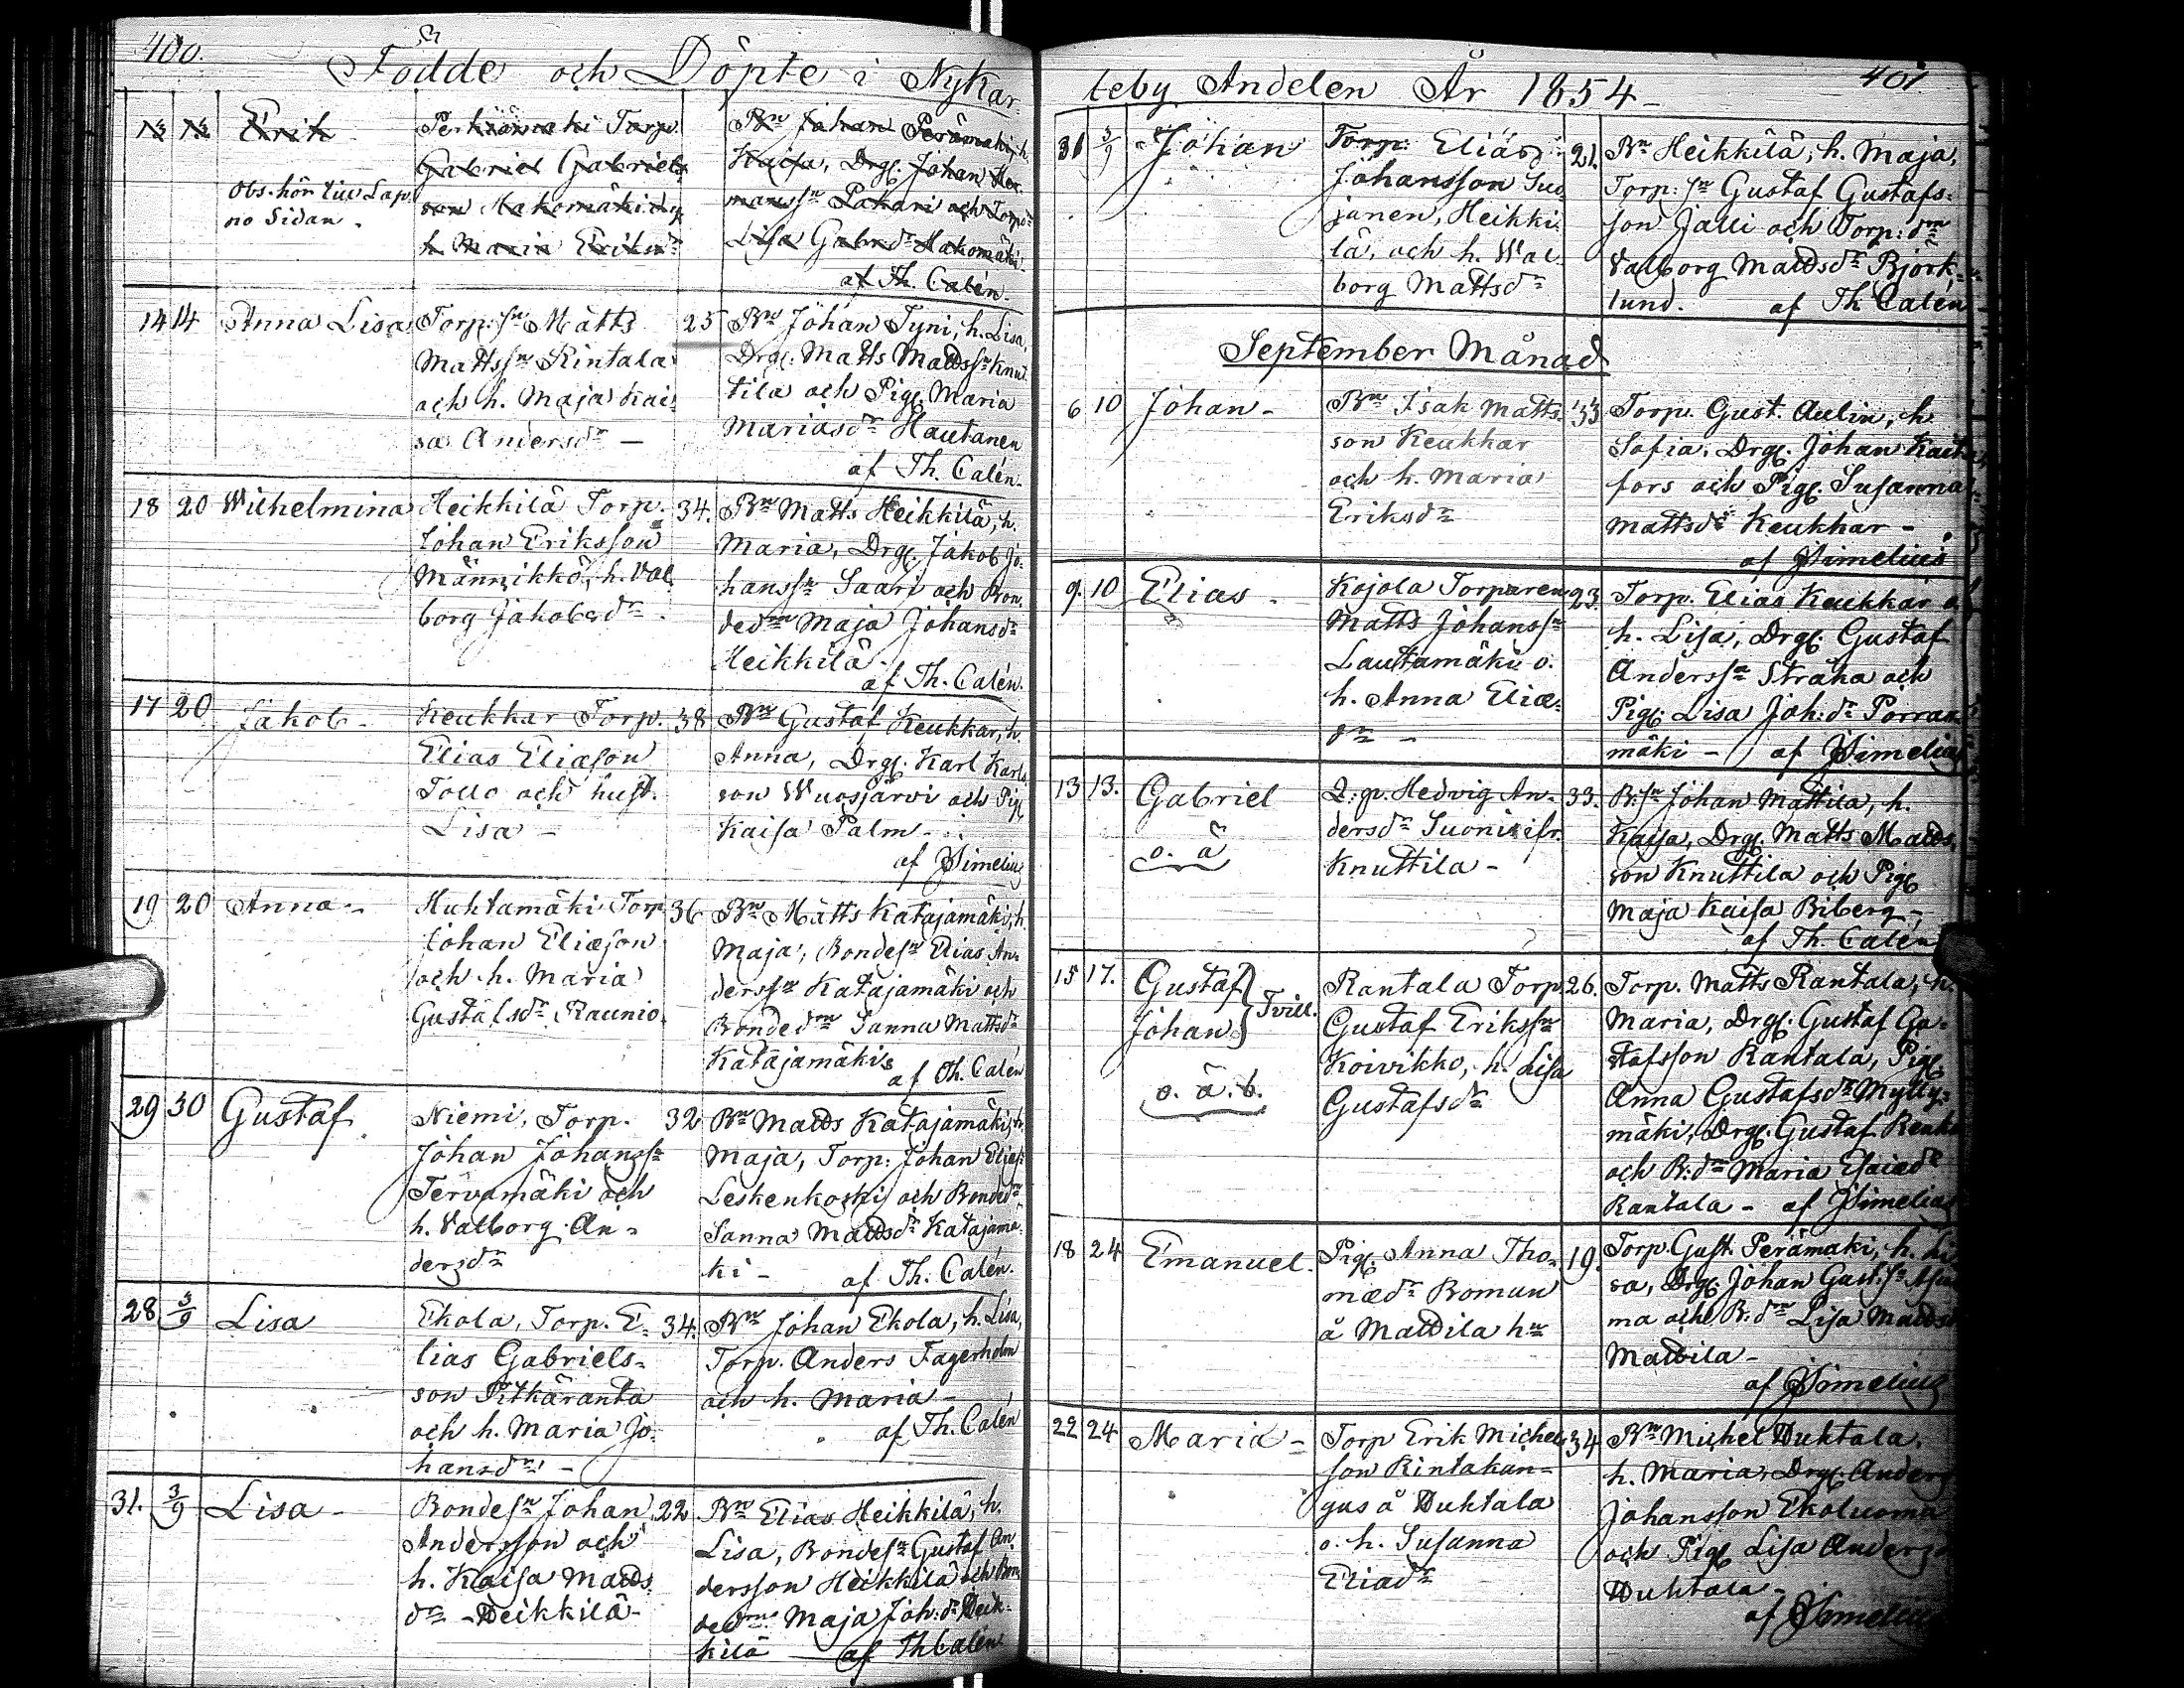 400.
Födde och Döpte i Nykar-
Erik
Perkiömäki Torp
Gabriel Gabriels-
son Makomäki
h. Maria Eriksdr
Obs. hör till Lap-
no Sidan.
Bn Johan Perämäki, h.
Kaisa, Drg. Johan Her-
manssn Pakari och Torpdr
Lisa Gabrdr Makomäki
af Th. Calén.
14 14 Anna Lisa
Torp:sn Matts
Mattssn Rintala
och h. Maja Kai-
sa Andersdr –
25
Bn Johan Tyni, h. Lisa,
Drg. Matts Mattssn Knut-
tila och Pig. Maria
Mariasdr Hautanen
af Th. Calén.
18 20 Wilhelmina
Heikkilä Torp.
Johan Eriksson
Männikkö, h. Val-
borg Jakobsdr.
34.
Bn Matts Heikkilä, h.
Maria, Drg. Jakob Jo-
hanssn Saari och Bon-
dedn Maja Johansdr
Heikkilä.
af Th. Calén.
17 20 Jakob –
Keukkar Torp.
Elias Eliæson
Tollo och hust.
Lisa –
38
Bn Gustaf Keukkar, h.
Anna, Drg. Karl Karls-
son Wuosjärvi och Pig
Kaisa Palm –
af JSimelius
19 20 Anna –
Huhtamäki Torp
Johan Eliæson
och h. Maria
Gustafsdr Raunio.
36
Bn Matts Katajamäki, h.
Maja, Bondesn Elias An-
derssn Katajamäki och
Bondedn Sanna Mattsdr
Katajamäki
af Th. Calén
29 30 Gustaf.
Niemi, Torp.
Johan Johanssn
Tervamäki och
h. Valborg An-
dersdr
32
Bn Matts Katajamäki, h.
Maja, Torp: Johan Eliæsn
Leskenkoski och Bondedn
Sanna Mattsdr Katajamä-
ki – af Th. Calén.
28 3/9 Lisa
Ekola, Torp. E-
lias Gabriels-
son Pitkäranta
och h. Maria Jo-
hansdr –
34.
Bn Johan Ekola, h. Lisa,
Torp. Anders Fagerholm
och h. Maria –
af Th. Calén
31. 3/9 Lisa –
Bondesn Johan
Andersson och
h. Kaisa Matts-
dr – Heikkilä –
22
Bn Elias Heikkilä, h.
Lisa, Bondesn Gustaf An-
dersson Heikkilä och Bon-
dedn Maja Joh:dr Heik-
kilä af Th Calén
401.
leby Andelen År 1854 –
31 3/9 Johan
Torp: Elias
Johansson Suo-
janen, Heikki-
lä, och h. Wal-
borg Mattsdr
21.
Bn Heikkilä, h. Maja,
Torp:sn Gustaf Gustafs-
son Jalli och Torp:dn
Valborg Mattsdr Björk-
lund. af Th Calén
September Månad
6 10 Johan –
Bn Isak Matts-
son Keukkar
och h. Maria
Eriksdr
33
Torp. Gust. Aulin, h
Sofia, Drg. Johan
fors och Pig. Susanna
Mattsdr Keukkar –
af JSimelius
9. 10 Elias –
Kojola Torparen
Matts Johanssn
Lautamäki o.
h. Anna Eliæ-
dr –
23.
Torp. Elias Keukkar o.
h. Lisa, Drg. Gustaf
Anderssn Straka och
Pig. Lisa Joh:dr Porran-
mäki – af JSimelius
13 13. Gabriel
o. ä
Q:p. Hedvig An-
dersdr Suoni ifr.
Knuttila –
33.
B:sn Johan Mattila, h.
Kaisa, Drg. Matts Matts-
son Knuttila och Pig
Maja Kaisa Biberg –
af Th. Calén
15 17. Gustaf
Johan } Tvill.
o. ä. b.
Rantala Torp.
Gustaf Erikssn
Koivikko, h. Lisa
Gustafsdr
26.
Torp. Matts Rantala, h.
Maria, Drg. Gustaf Gu-
stafsson Rantala, Pig
Anna Gustafsdr Mylly-
mäki, Drg. Gustaf
och B:dn Maria Esaiædr
Rantala – af JSimelius
18 24 Emanuel.
Pig. Anna Tho-
mædr Roman
å Mattila hn
19.
Torp. Gust. Perämäki, h. Li-
sa, Drg. Johan Gust:sn
ma och B:dn Lisa Mattsd
Mattila –
af JSimelius
22 24 Maria –
Torp Erik Michels-
son Rintakan-
gus å Duktala
o. h. Susanna
Eliædr
34
Bn Michel Duktala,
h. Maria, Drg. Anders
Johansson Ekoluoma
och Pig Lisa Anders
Duktala –
af JSimelius